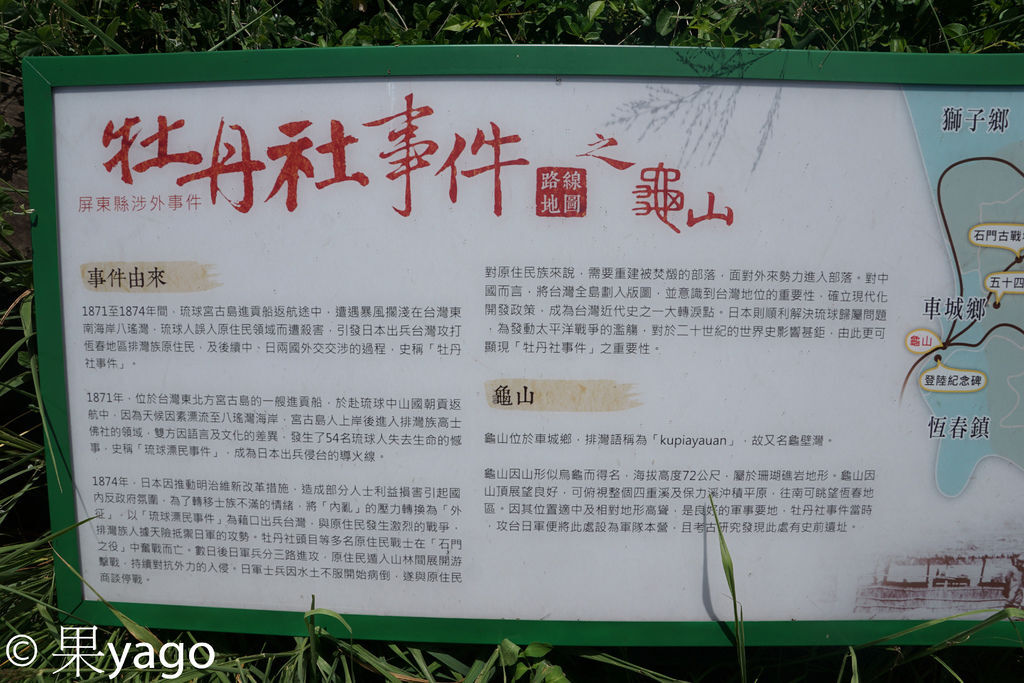 牡丹社事件之龜山
路線
地圖
屏東縣涉外事件
事件由來
1871至1874年間，琉球宮古島進貢船返航途中，遭遇暴風擱淺在台灣東
南海岸八瑤灣，琉球人誤入原住民領域而遭殺害，引發日本出兵台灣攻打
恆春地區排灣族原住民，及後續中、日兩國外交交涉的過程，史稱「牡丹
社事件」。
1871年，位於台灣東北方宮古島的一艘進貢船，於赴琉球中山國朝貢返
航中，因為天候因素漂流至八瑤灣海岸，宮古島人上岸後進入排灣族高士
佛社的領域，雙方因語言及文化的差異，發生了54名琉球人失去生命的憾
事，史稱「琉球漂民事件」，成為日本出兵侵台的導火線。
1874年，日本因推動明治維新改革措施，造成部分人士利益損害引起國
內反政府氛圍，為了轉移士族不滿的情緒，將「內亂」的壓力轉換為「外
征」，以「琉球漂民事件」為藉口出兵台灣，與原住民發生激烈的戰爭，
排灣族人據天險抵禦日軍的攻勢。牡丹社頭目等多名原住民戰士在「石門
之役」中奮戰而亡。數日後日軍兵分三路進攻，原住民遁入山林間展開游
擊戰，持續對抗外力的入侵。日軍士兵因水土不服開始病倒，遂與原住民
商談停戰。
對原住民族來說，需要重建被焚燬的部落，面對外來勢力進入部落。對中
國而言，將台灣全島劃入版圖，並意識到台灣地位的重要性，確立現代化
開發政策，成為台灣近代史之一大轉淚點。日本則順利解決琉球歸屬問題
，為發動太平洋戰爭的濫觴，對於二十世紀的世界史影響甚鉅，由此更可
顯現「牡丹社事件」之重要性。
龜山
龜山位於車城鄉，排灣語稱為「kupiayauan」，故又名龜壁灣。
龜山因山形似烏龜而得名，海拔高度72公尺，屬於珊瑚礁岩地形。龜山因
山頂展望良好，可俯視整個四重溪及保力溪沖積平原，往南可眺望恆春地
區。因其位置適中及相對地形高聳，是良好的軍事要地，牡丹社事件當時
，攻台日軍便將此處設為軍隊本營，且考古研究發現此處有史前遺址。
獅子鄉
石門古戰場
五十四
車城鄉
龜山
登陸紀念碑
恆春鎮
© 果yago